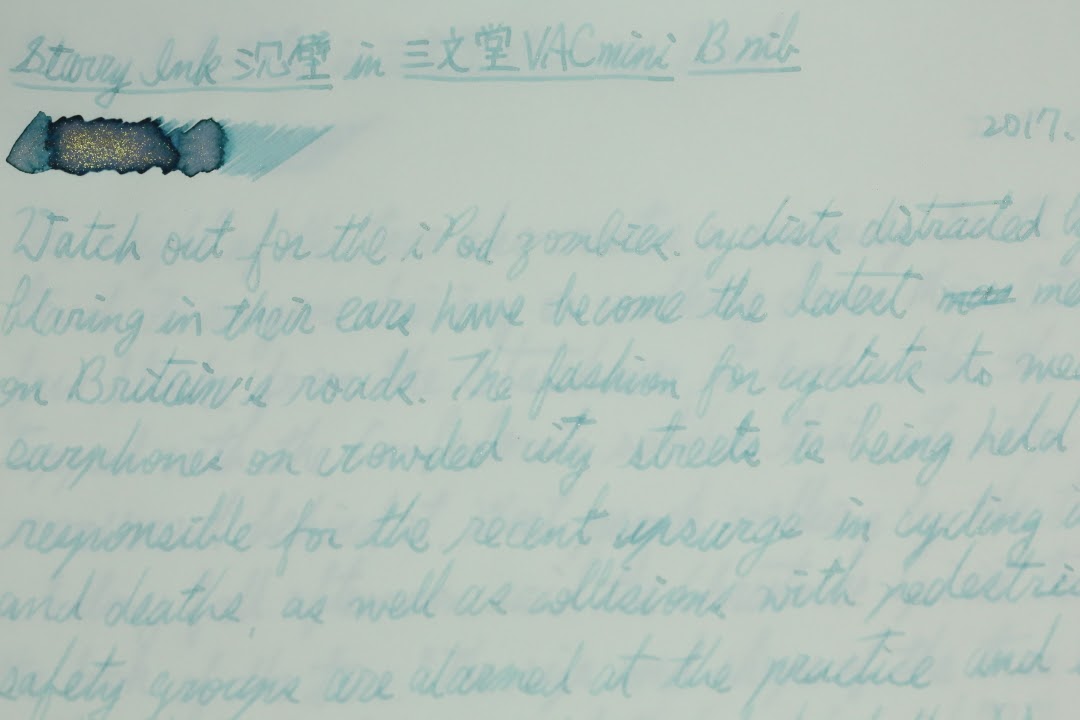 Starry Ink 沉璧 in 三文堂 VAC mini B nib
2017.
Watch out for the iPod zombies. Cyclists distracted
blaring in their ears have become the latest
on Britain's roads. The fashion for cyclists to
earphones on crowded city streets is being held
responsible for the recent upsurge in cycling
and deaths, as well as collisions with pedestri
safety groups are alarmed at the practice and